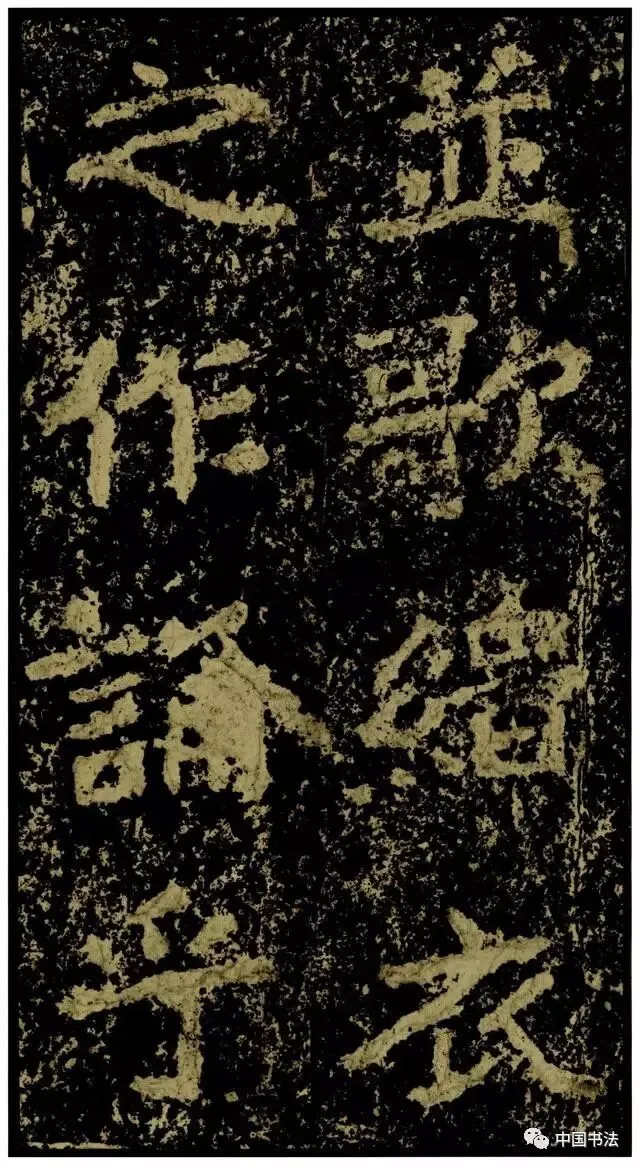 並歌緇衣
之作論乎
中国书法